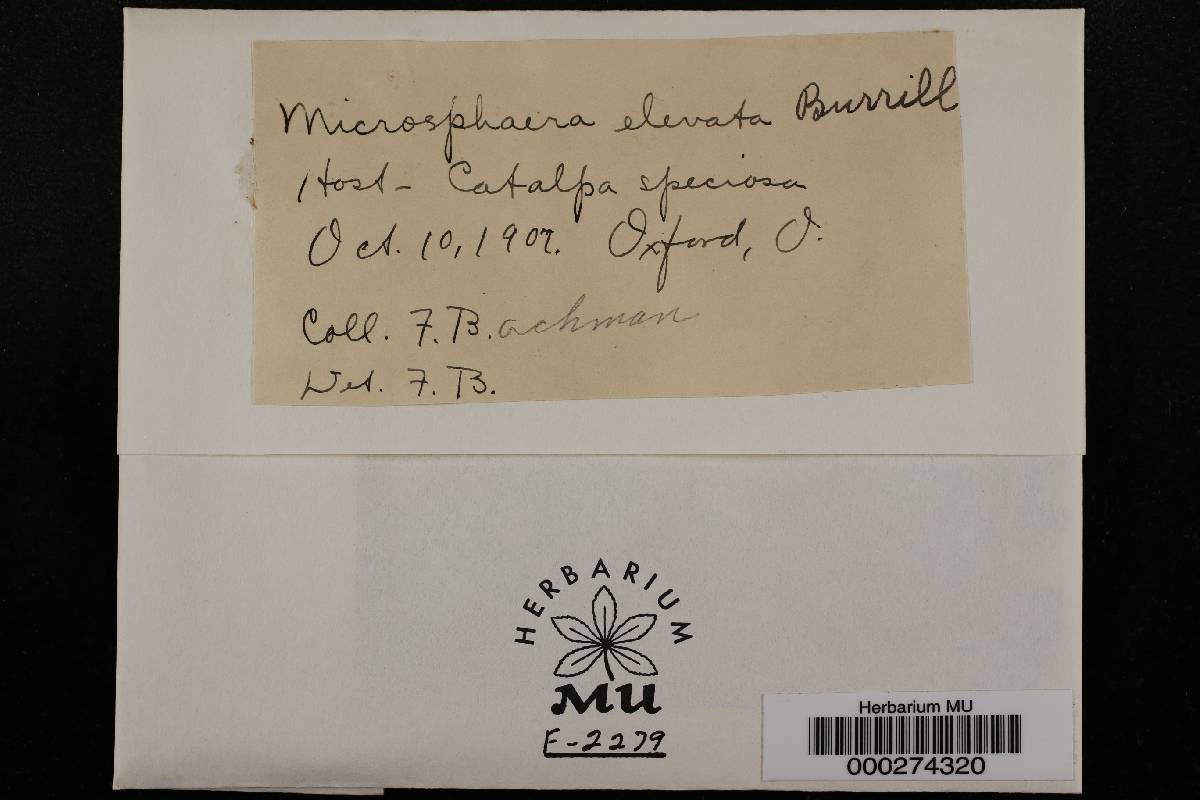 Microsphaera elevata Burrill
Host - Catalpa speciosa
Oct. 10, 1907. Oxford, O.
Coll. F. B.achman
Det. F. B.
HERBARIUM
MU
F-2279
Herbarium MU
000274320